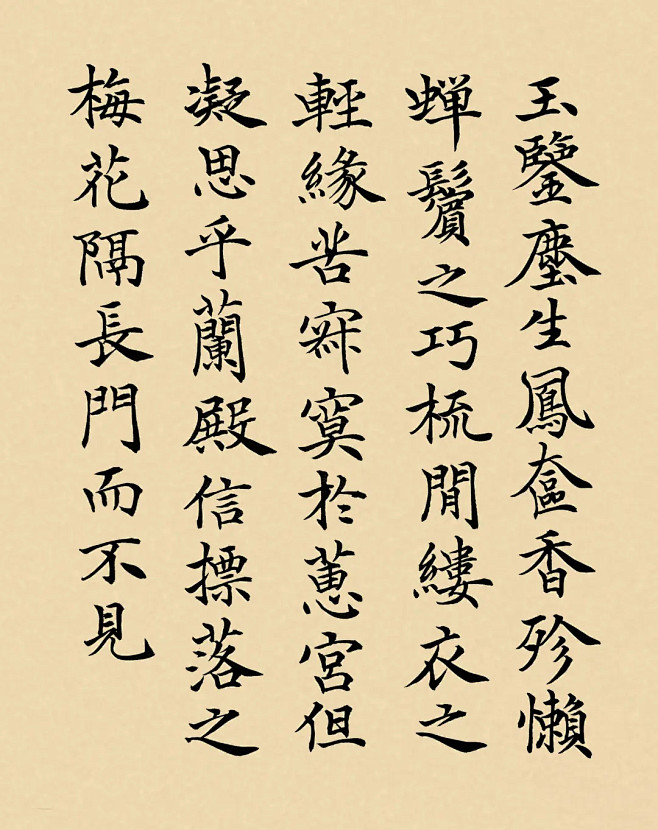 玉鑒塵生鳳奩香殄懶
蟬鬢之巧梳閒縷衣之
輕緣苦寂寞於蕙宮但
凝思乎蘭殿信摽落之
梅花隔長門而不見